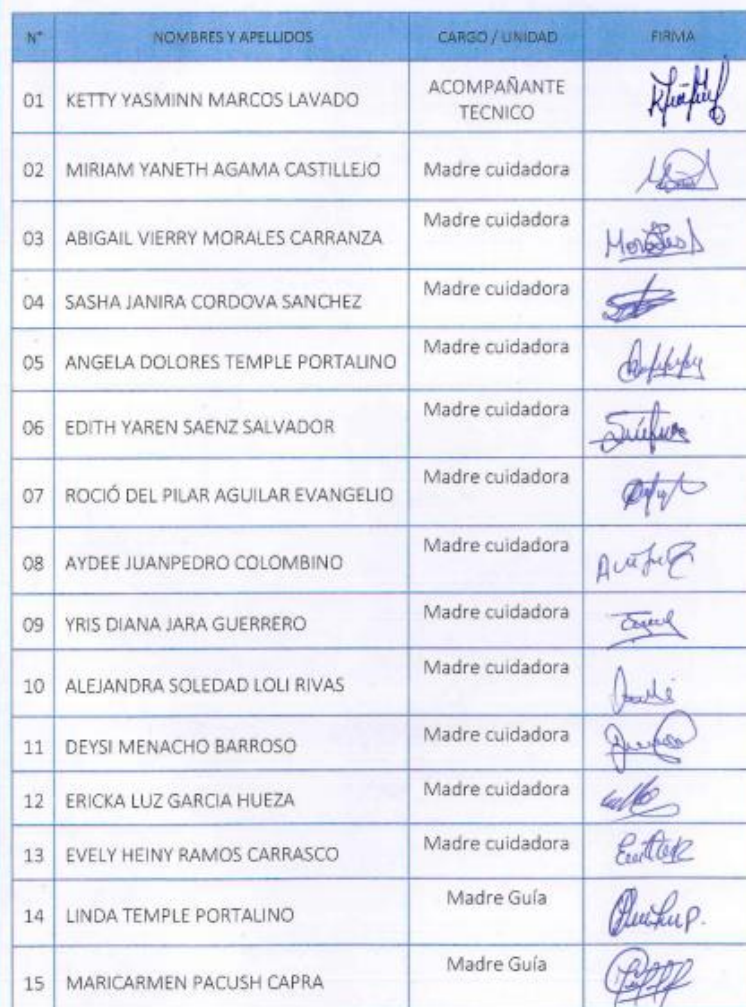 N° NOMBRES Y APELLIDOS CARGO / UNIDAD FIRMA
01 KETTY YASMINN MARCOS LAVADO ACOMPAÑANTE
TECNICO
02 MIRIAM YANETH AGAMA CASTILLEJO Madre cuidadora
03 ABIGAIL VIERRY MORALES CARRANZA Madre cuidadora Morales
04 SASHA JANIRA CORDOVA SANCHEZ Madre cuidadora
05 ANGELA DOLORES TEMPLE PORTALINO Madre cuidadora
06 EDITH YAREN SAENZ SALVADOR Madre cuidadora
07 ROCIÓ DEL PILAR AGUILAR EVANGELIO Madre cuidadora
08 AYDEE JUANPEDRO COLOMBINO Madre cuidadora
09 YRIS DIANA JARA GUERRERO Madre cuidadora
10 ALEJANDRA SOLEDAD LOLI RIVAS Madre cuidadora
11 DEYSI MENACHO BARROSO Madre cuidadora
12 ERICKA LUZ GARCIA HUEZA Madre cuidadora
13 EVELY HEINY RAMOS CARRASCO Madre cuidadora
14 LINDA TEMPLE PORTALINO Madre Guía
15 MARICARMEN PACUSH CAPRA Madre Guía